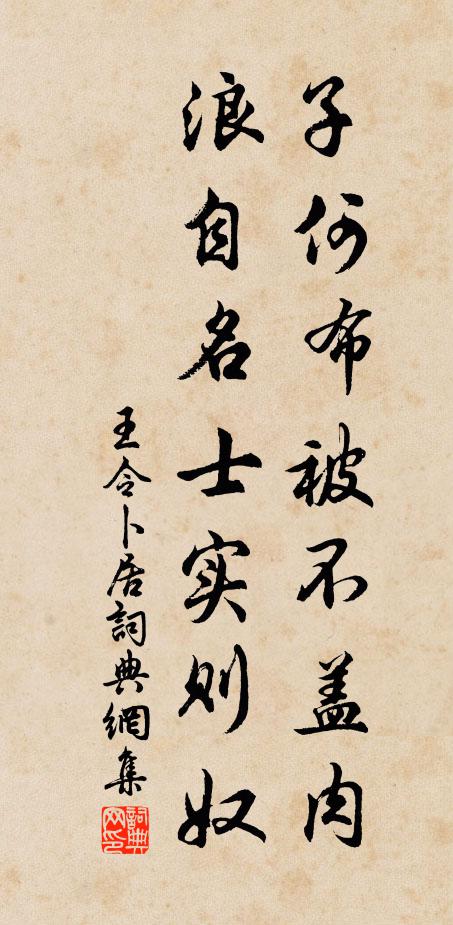 子何布被不盖肉
浪自名士实则奴
王令卜居詞典網集
詞典网印